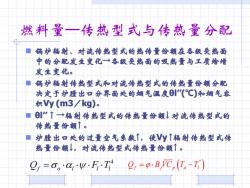 燃料量—传热型式与传热量分配
锅炉辐射、对流传热型式的热传量份额在各级受热面
中的分配发生变化→各级受热面的吸热量与工质焓增
发生变化。
锅炉辐射传热型式和对流传热型式的传热量份额分配
决定于炉膛出口分界面处的烟气温度θl″(℃)和烟气容
积Vy (m3／kg)。
θl″↑→辐射传热型式的传热量份额↓对流传热型式的
传热量份额↑。
炉膛出口处的过量空气系数↑，使Vy↑辐射传热型式传
热量份额↓，对流传热型式传热量份额↑。
Q_f = σ_o · α_f · ψ · F_f · T_l^4 Q_f = φ · B_j V̅C̅_p (T_a − T_l)